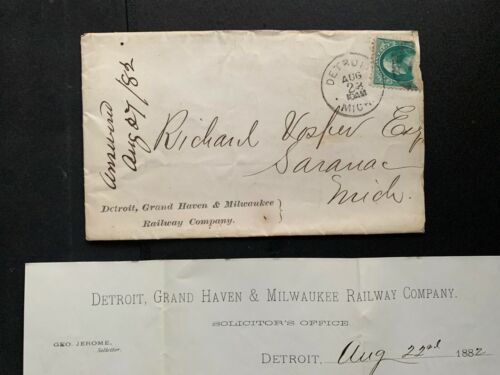 Answered
Aug 27/82
DETROIT
AUG
23
10AM
MICH.
Richard Vosper Esq
Saranac
Mich.
Detroit, Grand Haven & Milwaukee
Railway Company.
DETROIT, GRAND HAVEN & MILWAUKEE RAILWAY COMPANY.
SOLICITOR'S OFFICE.
GEO. JEROME,
Solicitor.
DETROIT, Aug 22nd 1882